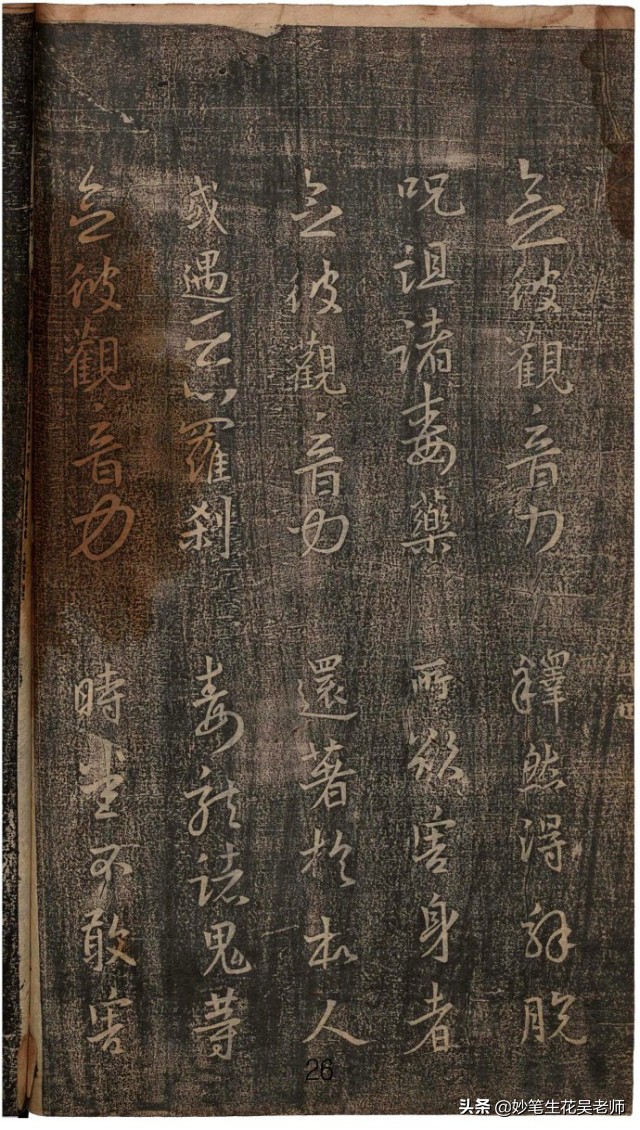 念彼觀音力 釋然得解脫
呪詛諸毒藥 所欲害身者
念彼觀音力 還著於本人
或遇惡羅剎 毒龍諸鬼等
念彼觀音力 時悉不敢害
26
头条 @妙笔生花吴老师